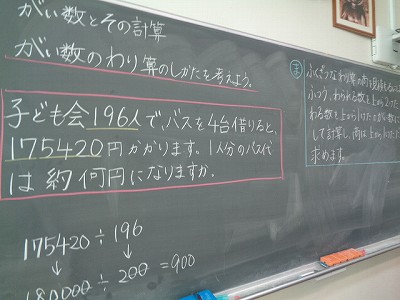 がい数とその計算
がい数のわり算のしかたを考えよう。
子ども会196人で、バスを4台借りると、
175420円かかります。1人分のバス代
は約何円になりますか。
175420÷196
↓ ↓
180000÷200=900
ま
ふくざつなわり算の商を見積もるには、
ふつう、わられる数を上から2けた
わる数を上から1けたのがい数に
して計算し、商は上から1けただけ
求めます。